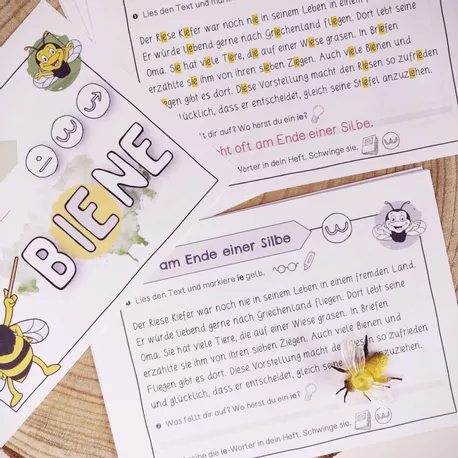 Lies den Text und mark
Der Riese Kiefer war noch nie in seinem Leben in einem fremden
Er würde liebend gerne nach Griechenland fliegen. Dort lebt seine
Oma. Sie hat viele Tiere, die auf einer Wiese grasen. In Briefen
erzählte sie ihm von ihren sieben Ziegen. Auch viele Bienen und
gen gibt es dort. Diese Vorstellung macht den Riesen so zufrieden
glücklich, dass er entscheidet, gleich seine Stiefel anzuziehen.
lt dir auf? Wo hörst du ein ie?
ht oft am Ende einer Silbe.
Wörter in dein Heft. Schwinge sie.
BIENE
am Ende einer Silbe
Lies den Text und markiere ie gelb.
Der Riese Kiefer war noch nie in seinem Leben in einem fremden Land.
Er würde liebend gerne nach Griechenland fliegen. Dort lebt seine
Oma. Sie hat viele Tiere, die auf einer Wiese grasen. In Briefen
erzählte sie ihm von ihren sieben Ziegen. Auch viele Bienen und
Fliegen gibt es dort. Diese Vorstellung macht de iesen so zufrieden
und glücklich, dass er entscheidet, gleich seine zuziehen.
Was fällt dir auf? Wo hörst du ein ie?
ie ie-Wörter in dein Heft. Schwinge sie.